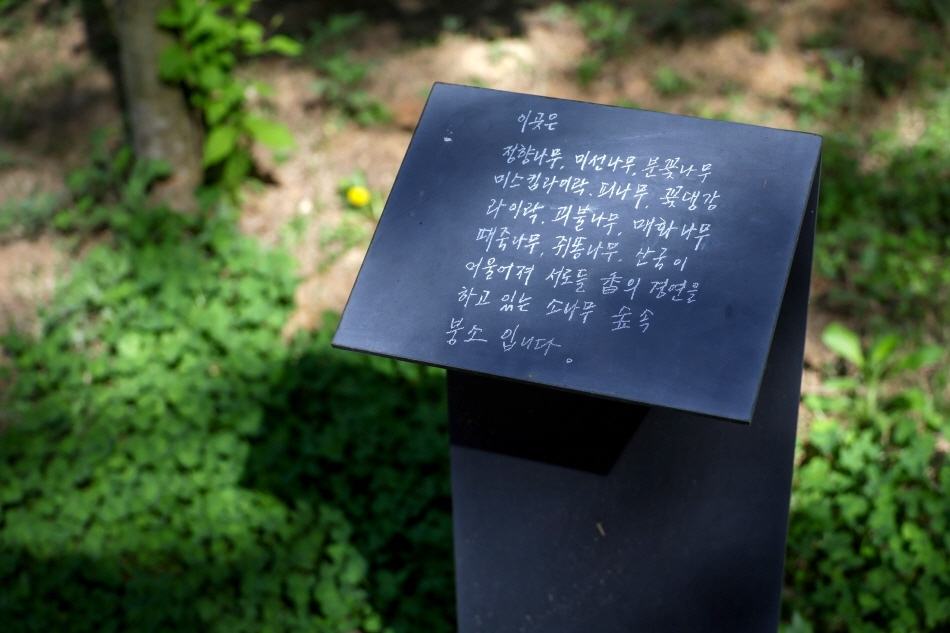 이곳은
정향나무, 미선나무, 분꽃나무
미스킴라이락, 피나무, 꽃댕강
라이락, 괴불나무, 매화나무
때죽나무, 쥐똥나무, 산국이
어울어져 서로들 香의 경연을
하고 있는 소나무 숲속
붕소 입니다.